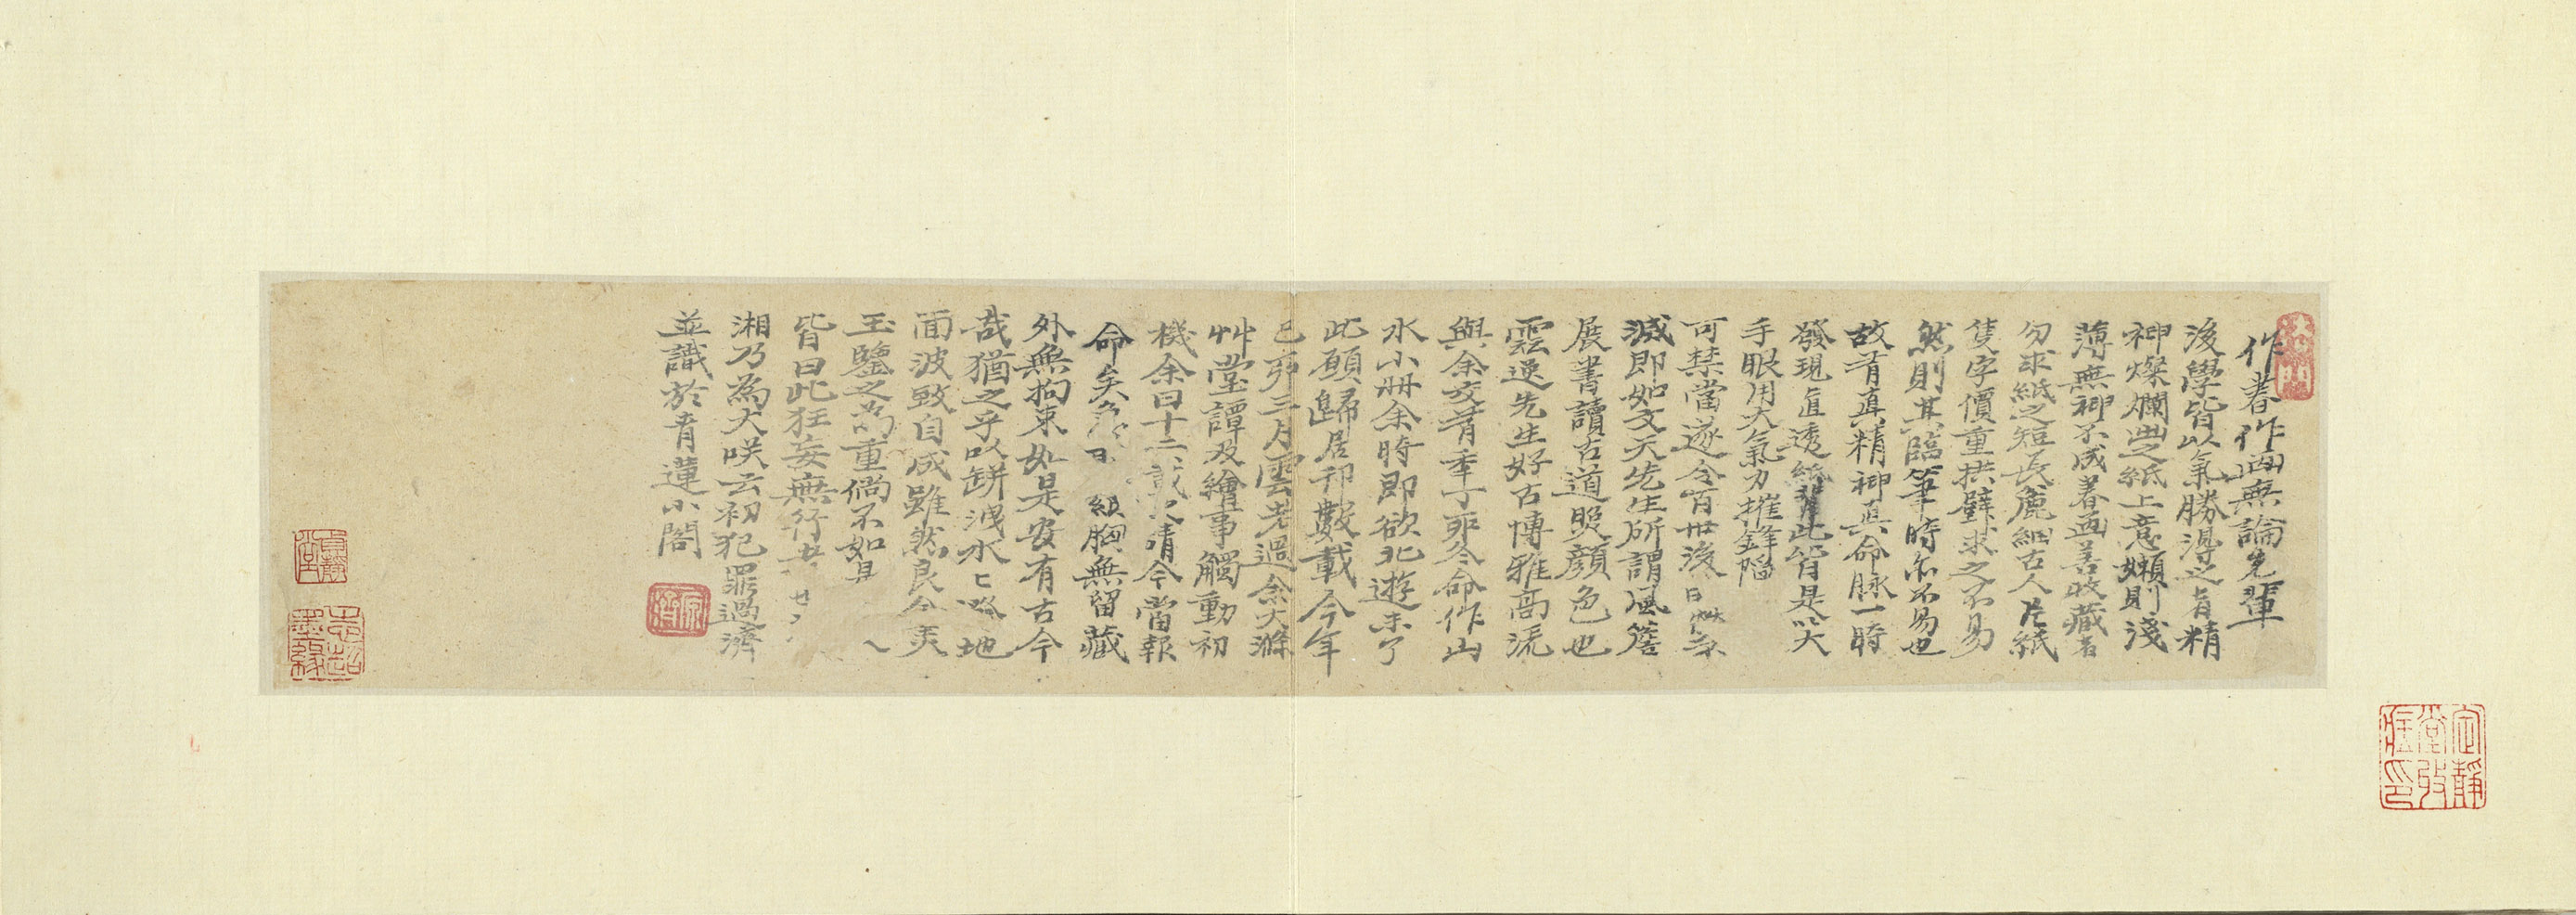 作書作畫無論先輩
後學皆以氣勝得之者精
神燦爛出之紙上意嬾則淺
薄無神不成書畫善收藏者
勿求紙之短長麁細古人片紙
隻字價重拱璧求之不易
然則其臨筆時亦不易也
故有真精神真命脉一時
發現直透紙背此皆是以大
手眼用大氣力摧鋒陷
可禁當遂令百世後
滅即如文天先生所謂風簷
展書讀古道照顏色也
雲逸先生好古博雅高流
與余交有年丁卯冬命作山
水小冊余時即欲北遊未了
此願歸居邗數載今年
己卯三月雲老過余大滌
艸堂譚及繪事觸動初
機余曰十二載之請今當報
命矣 胸無留藏
外無拘束如是安有古今
哉猶之乎以缾洩水水隨地
面波致自成雖然良令美
玉鑒之為重倘不如是
皆曰此狂妄無行
湘乃為大咲云初犯罪過濟
並識於青蓮小閣